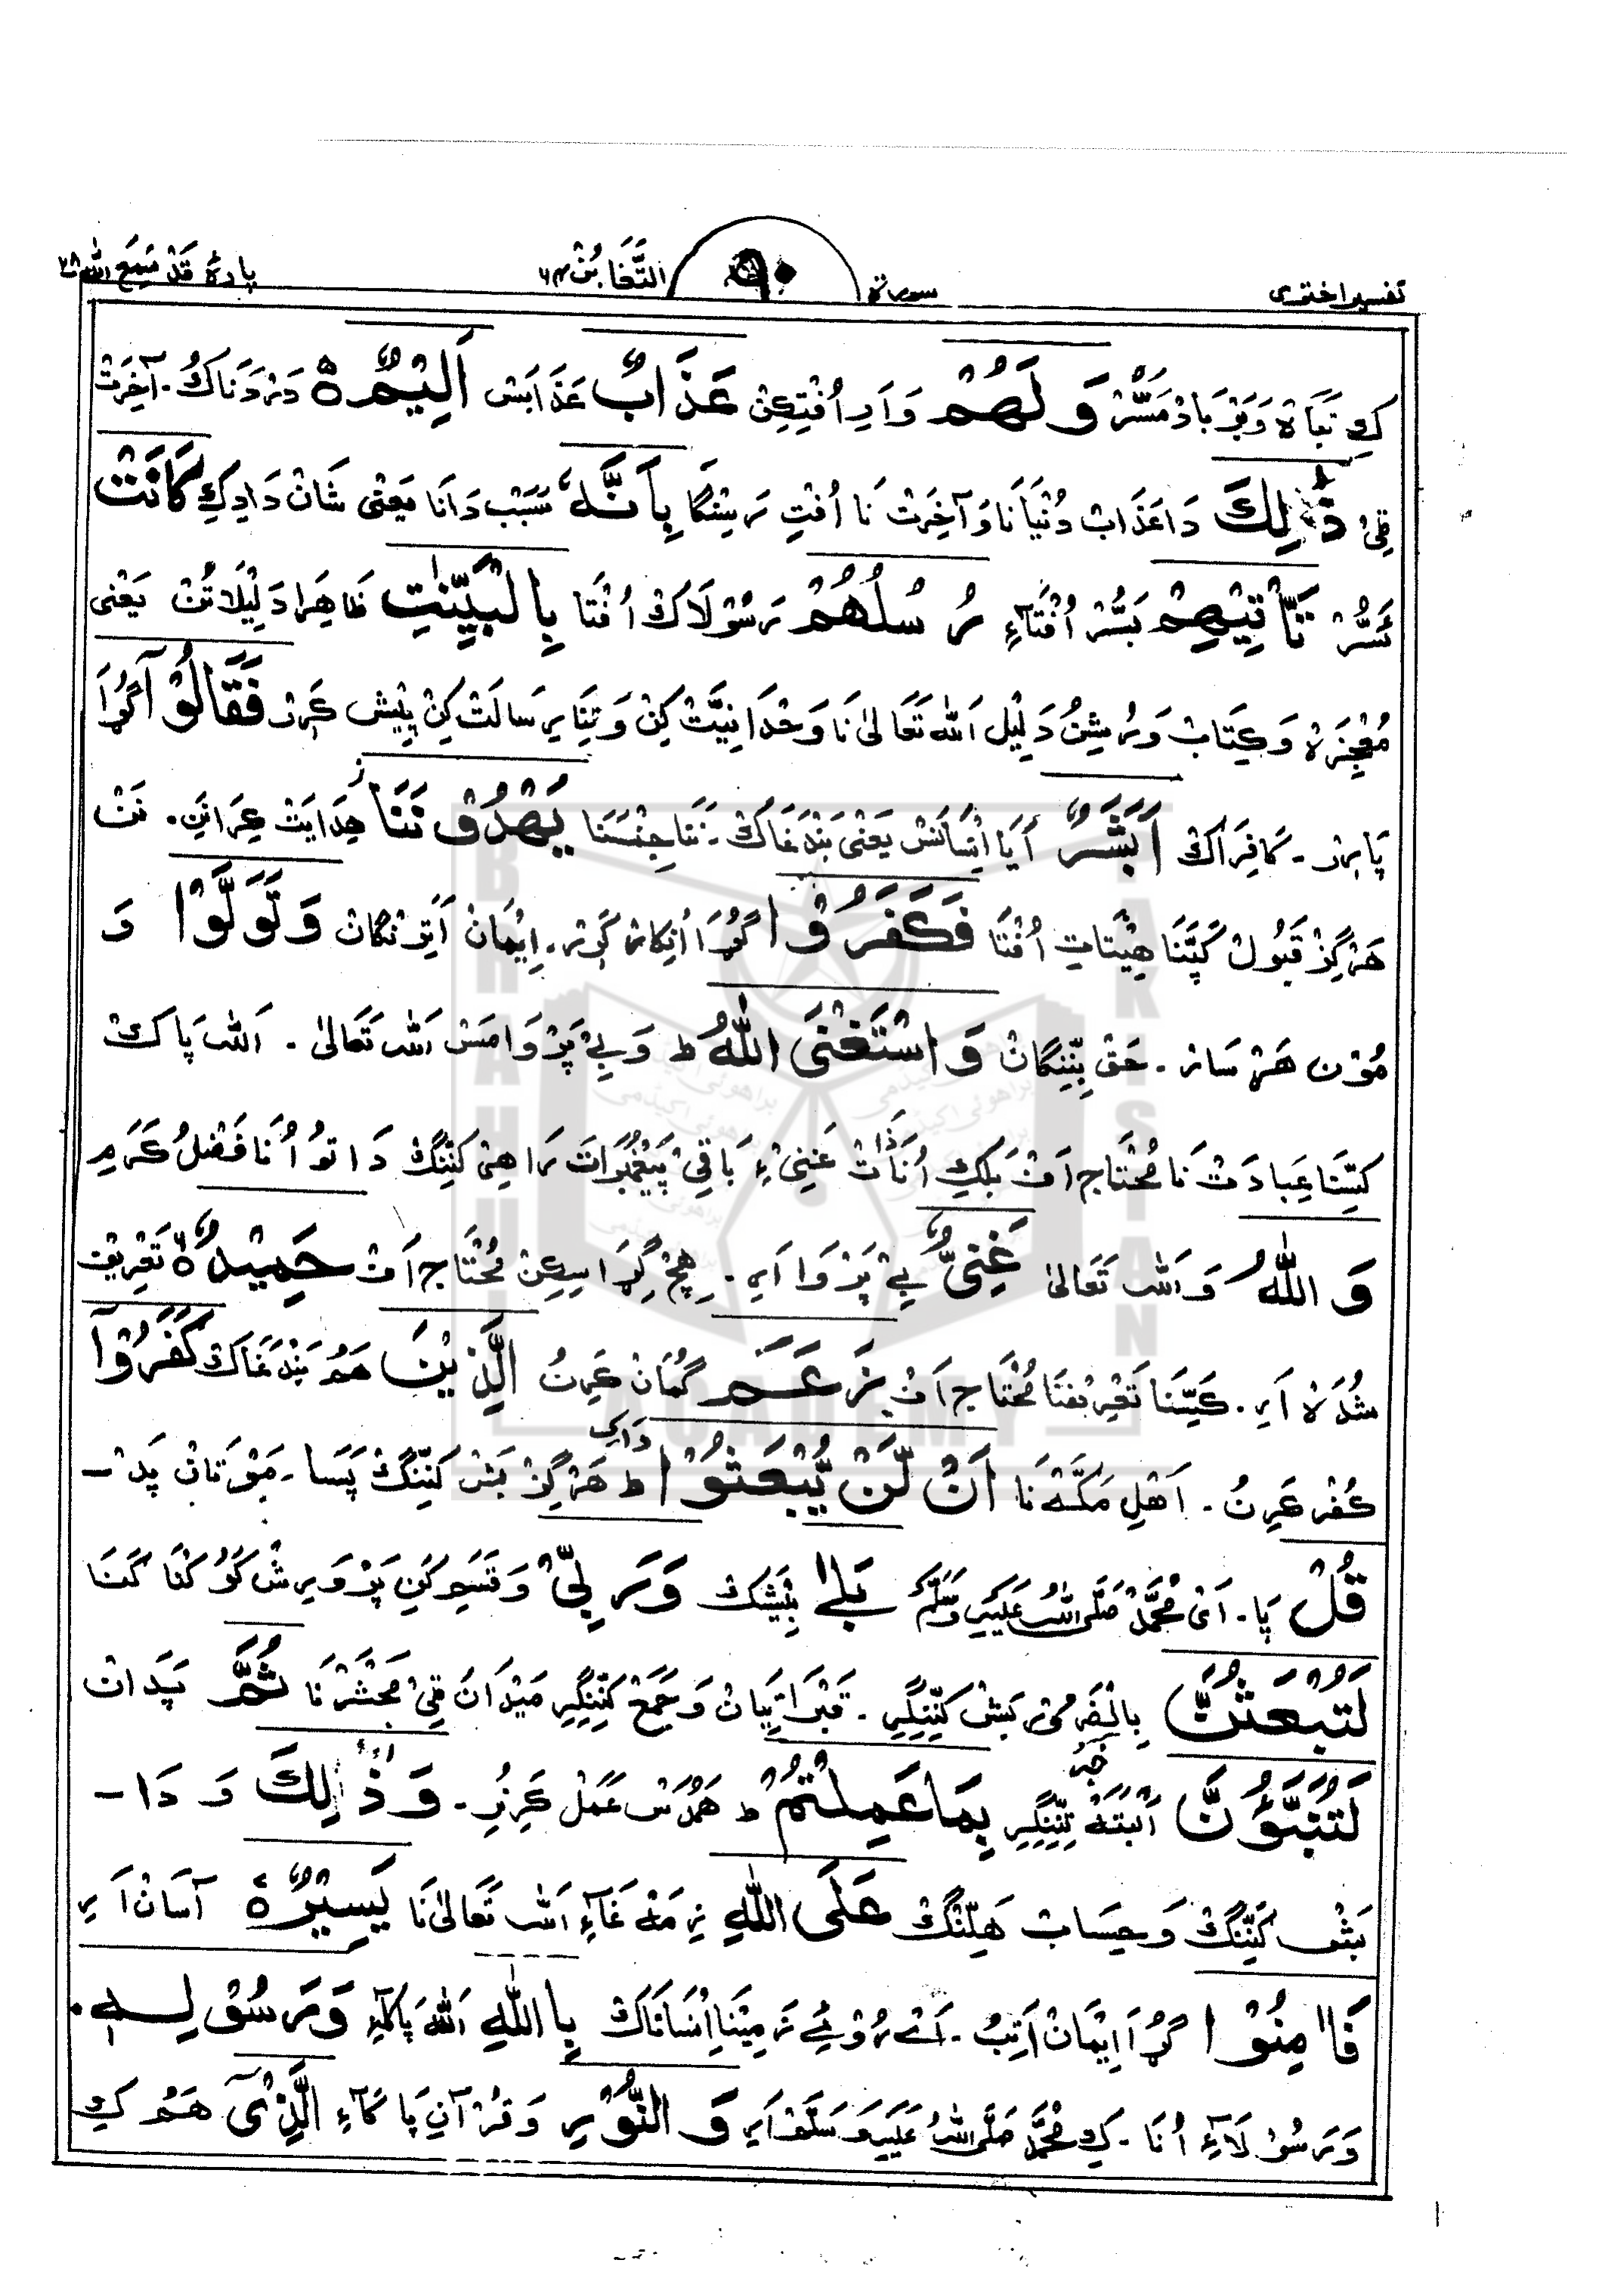 تفسیر اختری سورة ٩٠ التَّغَابُنْ ٦٤ پارهٔ قَدْ سَمِعَ اللّٰه ٢٨
كِ تَبَاہ وَ بَرْبَادْ مَسُّرْ وَلَهُمْ وَ اَرِ اُفْتِكِنْ عَذَابٌ عَذَابَسْ اَلِیْمٌ ٥ دَرْدَنَاكُ ۔ آخِرَتْ
قِیْ ذٰلِكَ دَا عَذَابْ دُنْیَا نَا وَ آخِرَتْ نَا اُفْتِ رَسِنْگَا بِاَنَّهٗ سَبَبْ دَانَا یَعْنِی شَانْ دَادِكِ كَانَتْ
تَسُّرْ تَّاْتِیْهِمْ بَسُّرْ اُفْتَاءِ رُسُلُهُمْ رَسُوْلَاكْ اُفْتَا بِالْبَیِّنٰتِ ظَاهِرَا دَلِیْلَاتَتْ یَعْنِی
مُعْجِزَہ وَ كِتَابْ وَ رُشِنُ دَلِیْل اَللّٰه تَعَالیٰ نَا وَحْدَانِیَّتْ كِنْ وَ تِنَا رِسَالَتْ كِنْ پِیْش كَرِرْ فَقَالُوْٓا گُڑَا
پَارِرْ ۔ كَافِرَاكْ اَبَشَرٌ اَیَا اِنْسَانَسْ یَعْنِی بَنْدَغَاكْ ۔ نَنَا جِنْسَنَا یَّهْدُوْنَنَا هِدَایَتْ كِرَانَنِ ۔ نَنْ
هَرْگِزْ قَبُوْلْ كَپَّنَا هِیْتَاتِ اُفْتَا فَكَفَرُوْا گُڑَا اِنْكَارْ كَرِرْ ۔ اِیْمَانْ اَتَوْنْگَانْ وَتَوَلَّوْا وَ
مُوْن هَرْسَارْ ۔ حَقْ بِنِّنِگَانْ وَاسْتَغْنَى اللّٰهُ ط وَ بِےْ پَرْوَا مَسْ اَللّٰه تَعَالیٰ ۔ اَللّٰه پَاكْ
كَسِّنَا عِبَادَتْ نَا مُحْتَاج اَفْ بَلْكِ اُنَا ذَاتْ غَنِیْ ءِ بَاقِیْ پَیْغَمْبَرَاتِ رَاهِیْ كَنِّنْگْ دَا تو اُنَا فَضْلُ كَرَمِ
وَاللّٰهُ وَ اَللّٰه تَعَالیٰ غَنِیٌّ بِےْ پَرْوَا اَرِ ۔ هِچْ گِڑَاسِكِنْ مُحْتَاج اَفْ حَمِیْدٌ ٥ تَعْرِیْفْ
شُدَہْ اَرِ ۔ كَسِّنَا تَعْرِیْفْنَا مُحْتَاج اَفْ زَعَمَ گُمَانْ كَرِرُ الَّذِیْنَ هَمُ بَنْدَغَاكْ كَفَرُوْٓا
كُفْر كَرِرُ ۔ اَهْلِ مَكَّهْ نَا اَنْ لَّنْ یُّبْعَثُوْا ط دَاكِ هَرْگِزْ بَشْ كَنِّنْگْ پَسَا ۔ مَوْتَانْ پَدْ ـ
قُلْ پَا ۔ اَیْ مُحَمَّدْ صَلَّى اللّٰهُ عَلَیْهِ وَسَلَّمْ بَلٰى بِیْشَكْ وَرَبِّیْ وَ قَسَمِ كَنِ پَرْوَرِشْ كَوْ كَنَا كَنَا
لَتُبْعَثُنَّ بِالْضَرُوْر بَشْ كَنِّنْگِرِ ۔ قَبْرَاتِیَانْ وَ جَمَعْ كَنِّنْگِرِ مَیْدَانَ قِیْ مَحْشَرْ نَا ثُمَّ پَدَانْ
لَتُنَبَّؤُنَّ اَلْبَتَّهْ خَبَرْ تِنِّنْگِرِ بِمَا عَمِلْتُمْ ط هَمُدْسْ عَمَلْ كَرِرُ ۔ وَذٰلِكَ وَ دَا ـ
بَشْ كَنِّنْگْ وَ حِسَابْ هَلِّنْگْ عَلَى اللّٰهِ زِمَّهْ غَآءِ اَللّٰه تَعَالیٰ نَا یَسِیْرٌ ٥ آسَانْ اَرِ
فَاٰمِنُوْا گُڑَا اِیْمَانْ اَتِبُ ۔ اَےْ رُوْئِےْ زَمِیْنَا اِنْسَانَاكْ بِاللّٰهِ اَللّٰه پَاكَآءِ وَرَسُوْلِهٖ ۔
وَ رَسُوْلَآءِ اُنَا ۔ كِ مُحَمَّدْ صَلَّى اللّٰهُ عَلَیْهِ وَسَلَّمْ اَرِ وَالنُّوْرِ وَ قُرْآنِ پَاكَآءِ الَّذِیْٓ هَمُ كِ
BRAHUI ACADEMY PAKISTAN